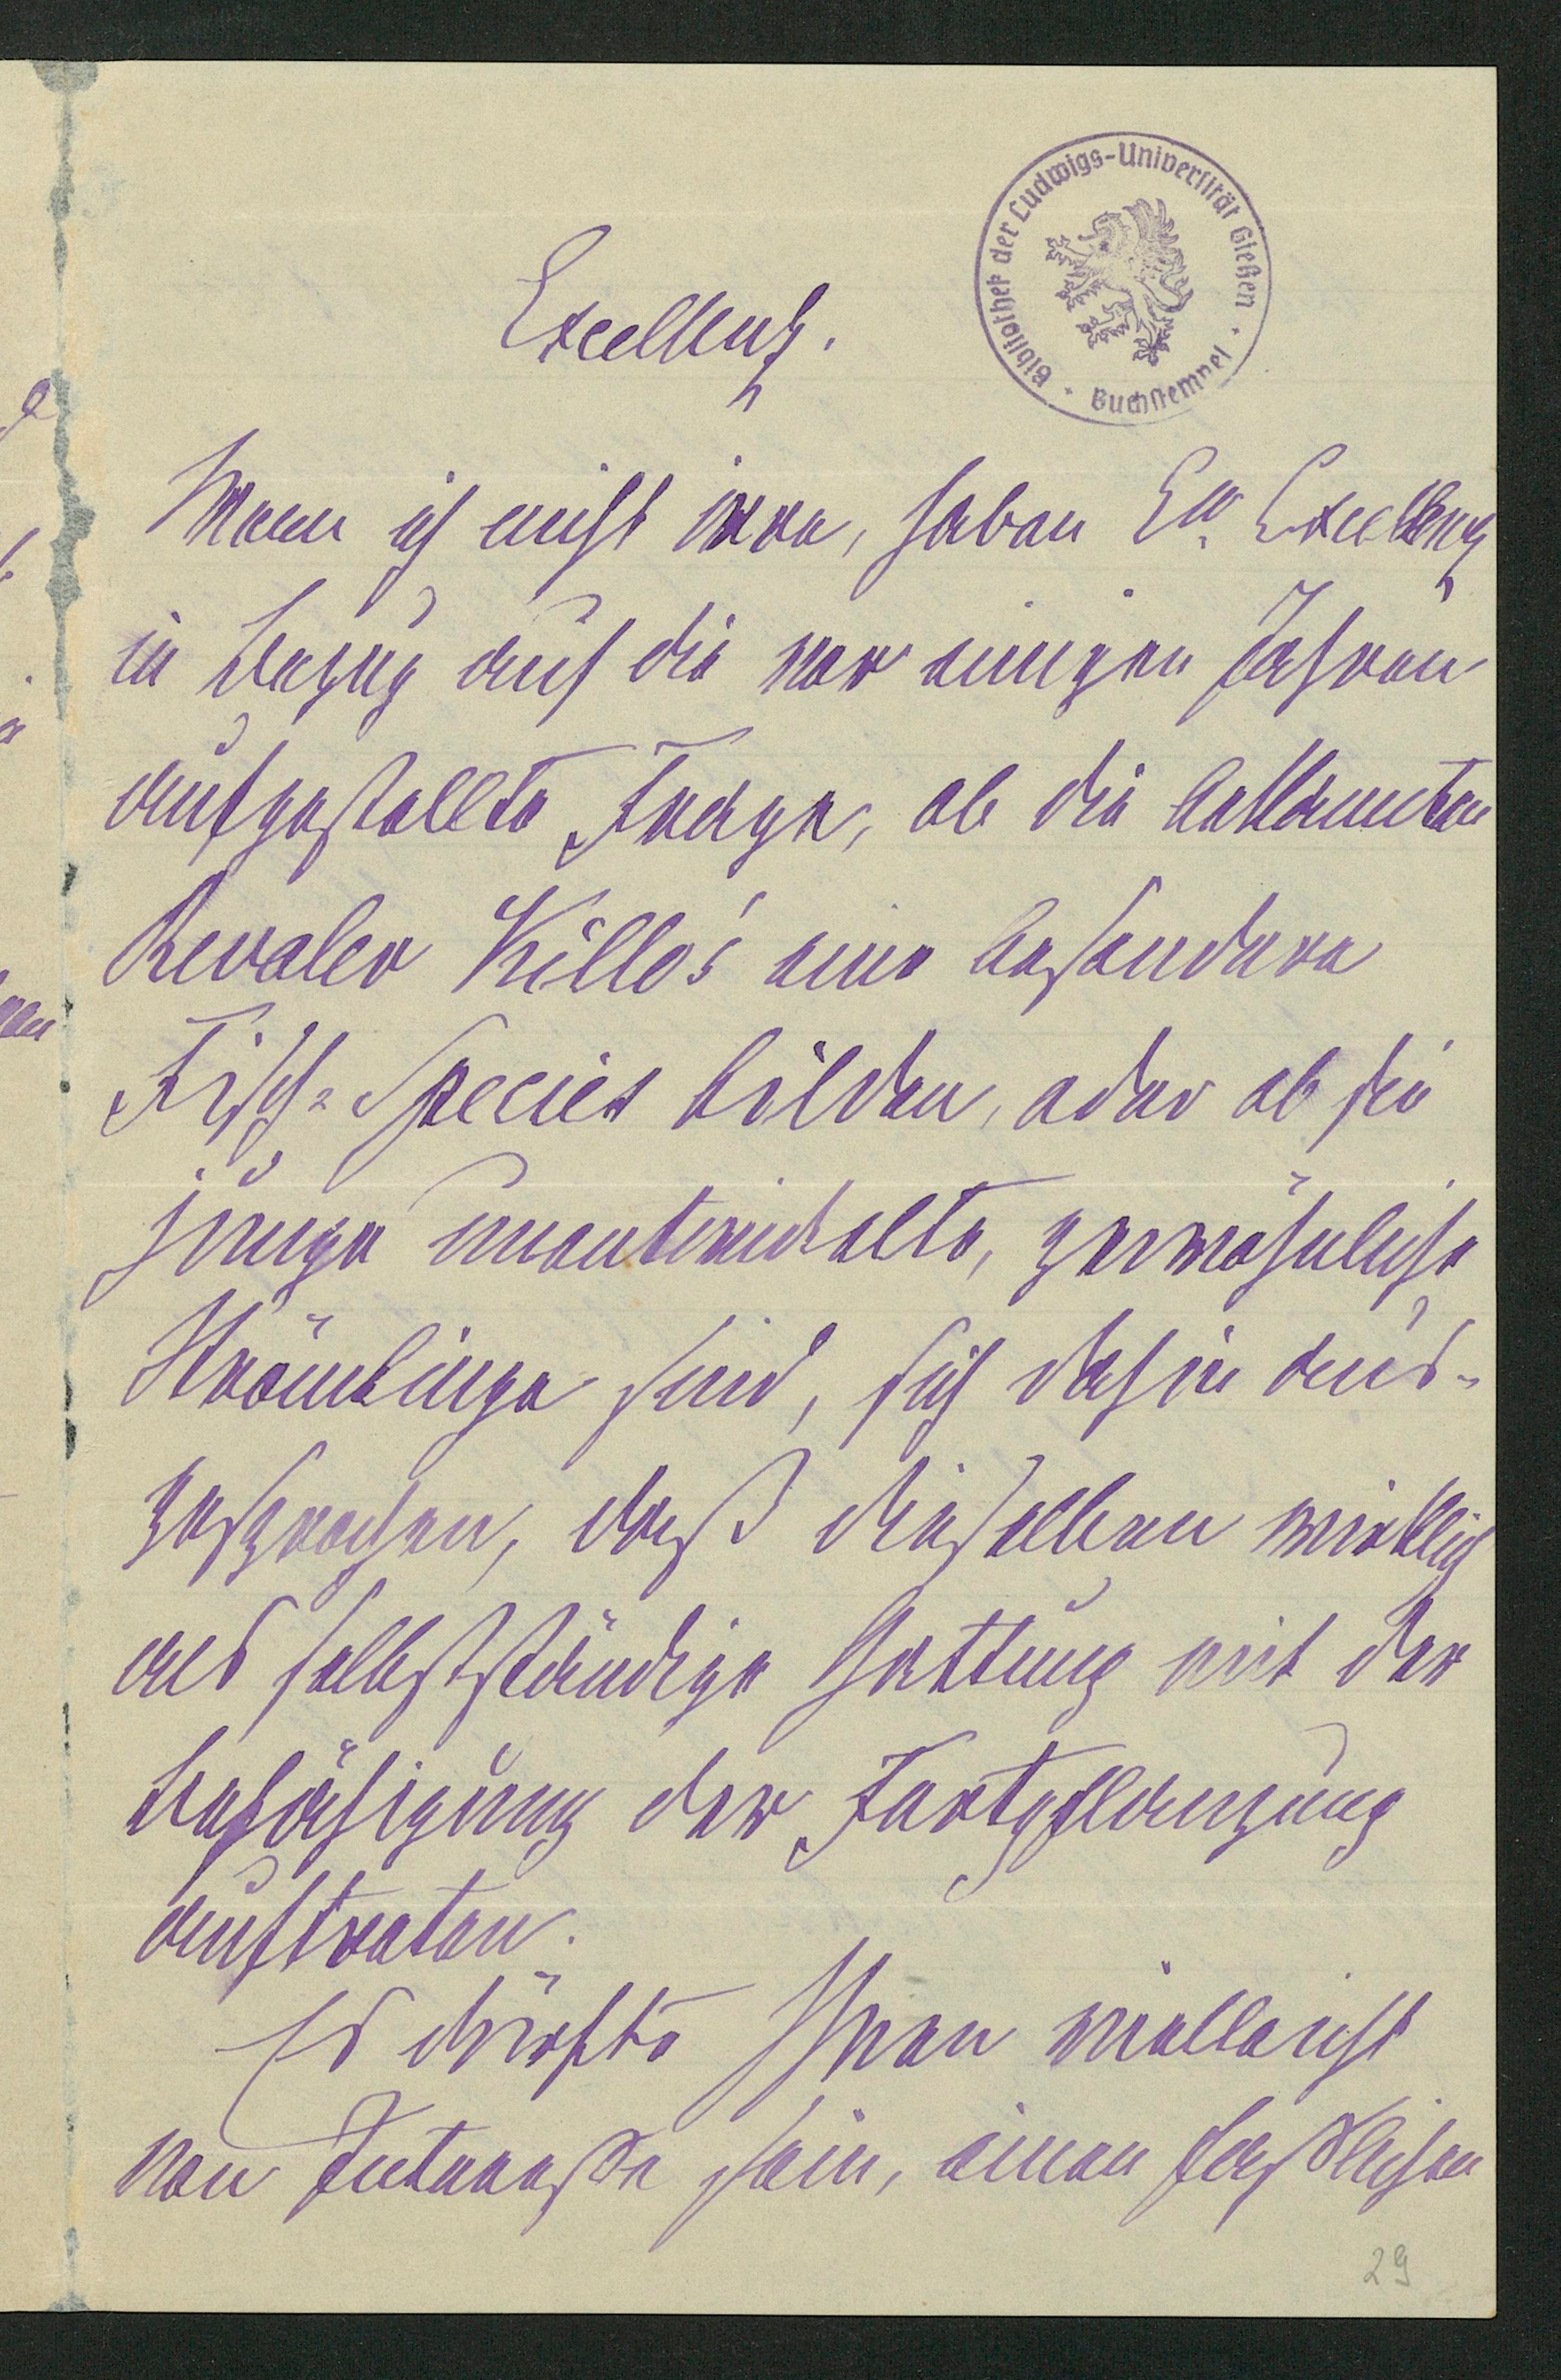 Bibliothek der Ludwigs-Universität Gießen · Buchstempel ·
Excellenz.
Wenn ich nicht irre, haben Ew. Excellenz
in Bezug auf die vor einigen Jahren
aufgestellte Frage, ob die bekannten
Revaler Killo's eine besondere
Fisch-Species bilden, oder ob sie
junge unentwickelte, gewöhnliche
Strömlinge sind, sich dahin aus-
gesprochen, daß dieselben wirklich
als selbstständige Gattung mit der
Befähigung der Fortpflanzung
auftreten.
Es dürfte Ihnen vielleicht
von Interesse sein, einen
29